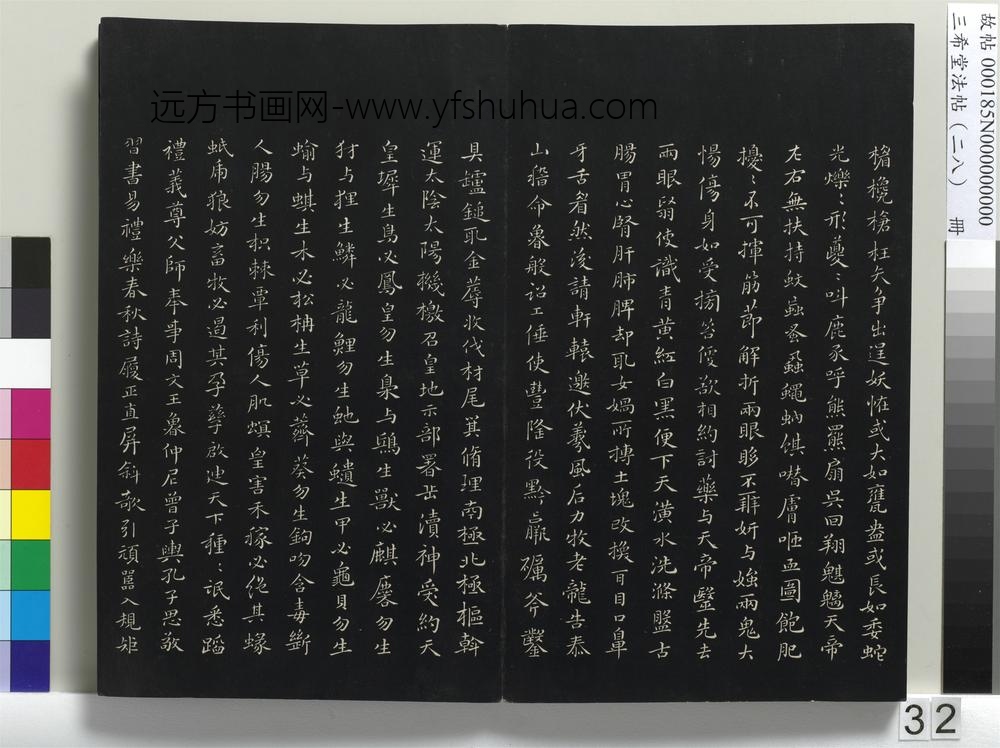 远方书画网-www.yfshuhua.com
故帖 000185N000000000
三希堂法帖(二八) 冊
欃槍枉矢争出逞妖恠或大如甕盎或長如委蛇
光爍〻形躨〻叫鹿豕呼熊羆扇吳回翔魃魑天帝
左右無扶持蚊䖟蚤蝨蠅蚋蜞噆膚咂血圖飽肥
擾〻不可揮筋節解折兩眼眵不辨妍与媸兩鬼大
惕傷身如受搒笞便欲相約討藥与天帝醫先去
兩眼翳使識青黄紅白黑便下天潢水洗滌盤古
腸胃心腎肝肺脾却取女媧所摶土塊改換耳目口鼻
牙舌眉然後請軒轅邀伏羲風后力牧老龍告泰
山稽命魯般詔工倕使豐隆役黔羸礪斧鑿
具鑪鎚取金蓐收伐材尾箕脩理南極北極樞斡
運太陰太陽機檄召皇地示部署岳瀆神受約天
皇墀生鳥必鳳皇勿生梟与鴟生獸必麒麐勿生
犲与狸生鱗必龍鯉勿生虵與生甲必龜貝勿生
蝓与蜞生木必松柟生草必薺葵勿生鉤吻含毒斷
人腸勿生枳棘覃利傷人肌螟蝗害禾稼必絶其蝝
蚳虎狼妨畜牧必遏其孕孳啟迪天下種〻氓悉蹈
禮義尊父師奉事周文王魯仲尼曾子輿孔子思敬
習書易禮樂春秋詩履正直屏斜欹引頑嚚入規矩
32